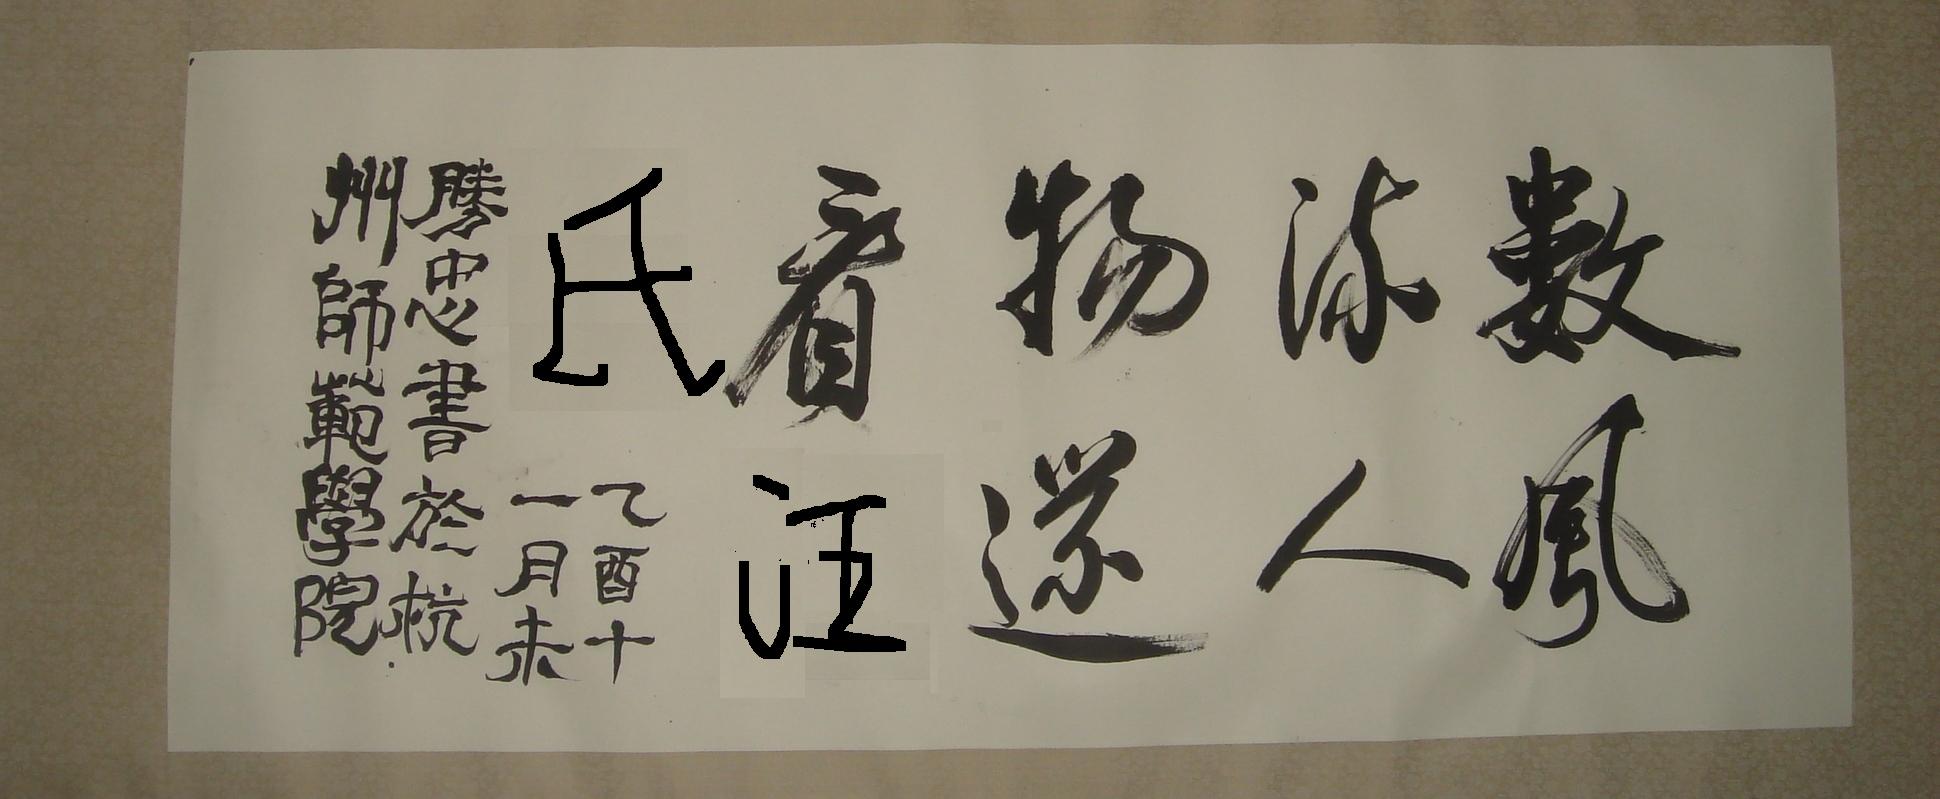 數風
流人
物還
看汪
氏
乙酉十
一月未
勝忠書於杭
州師範學院